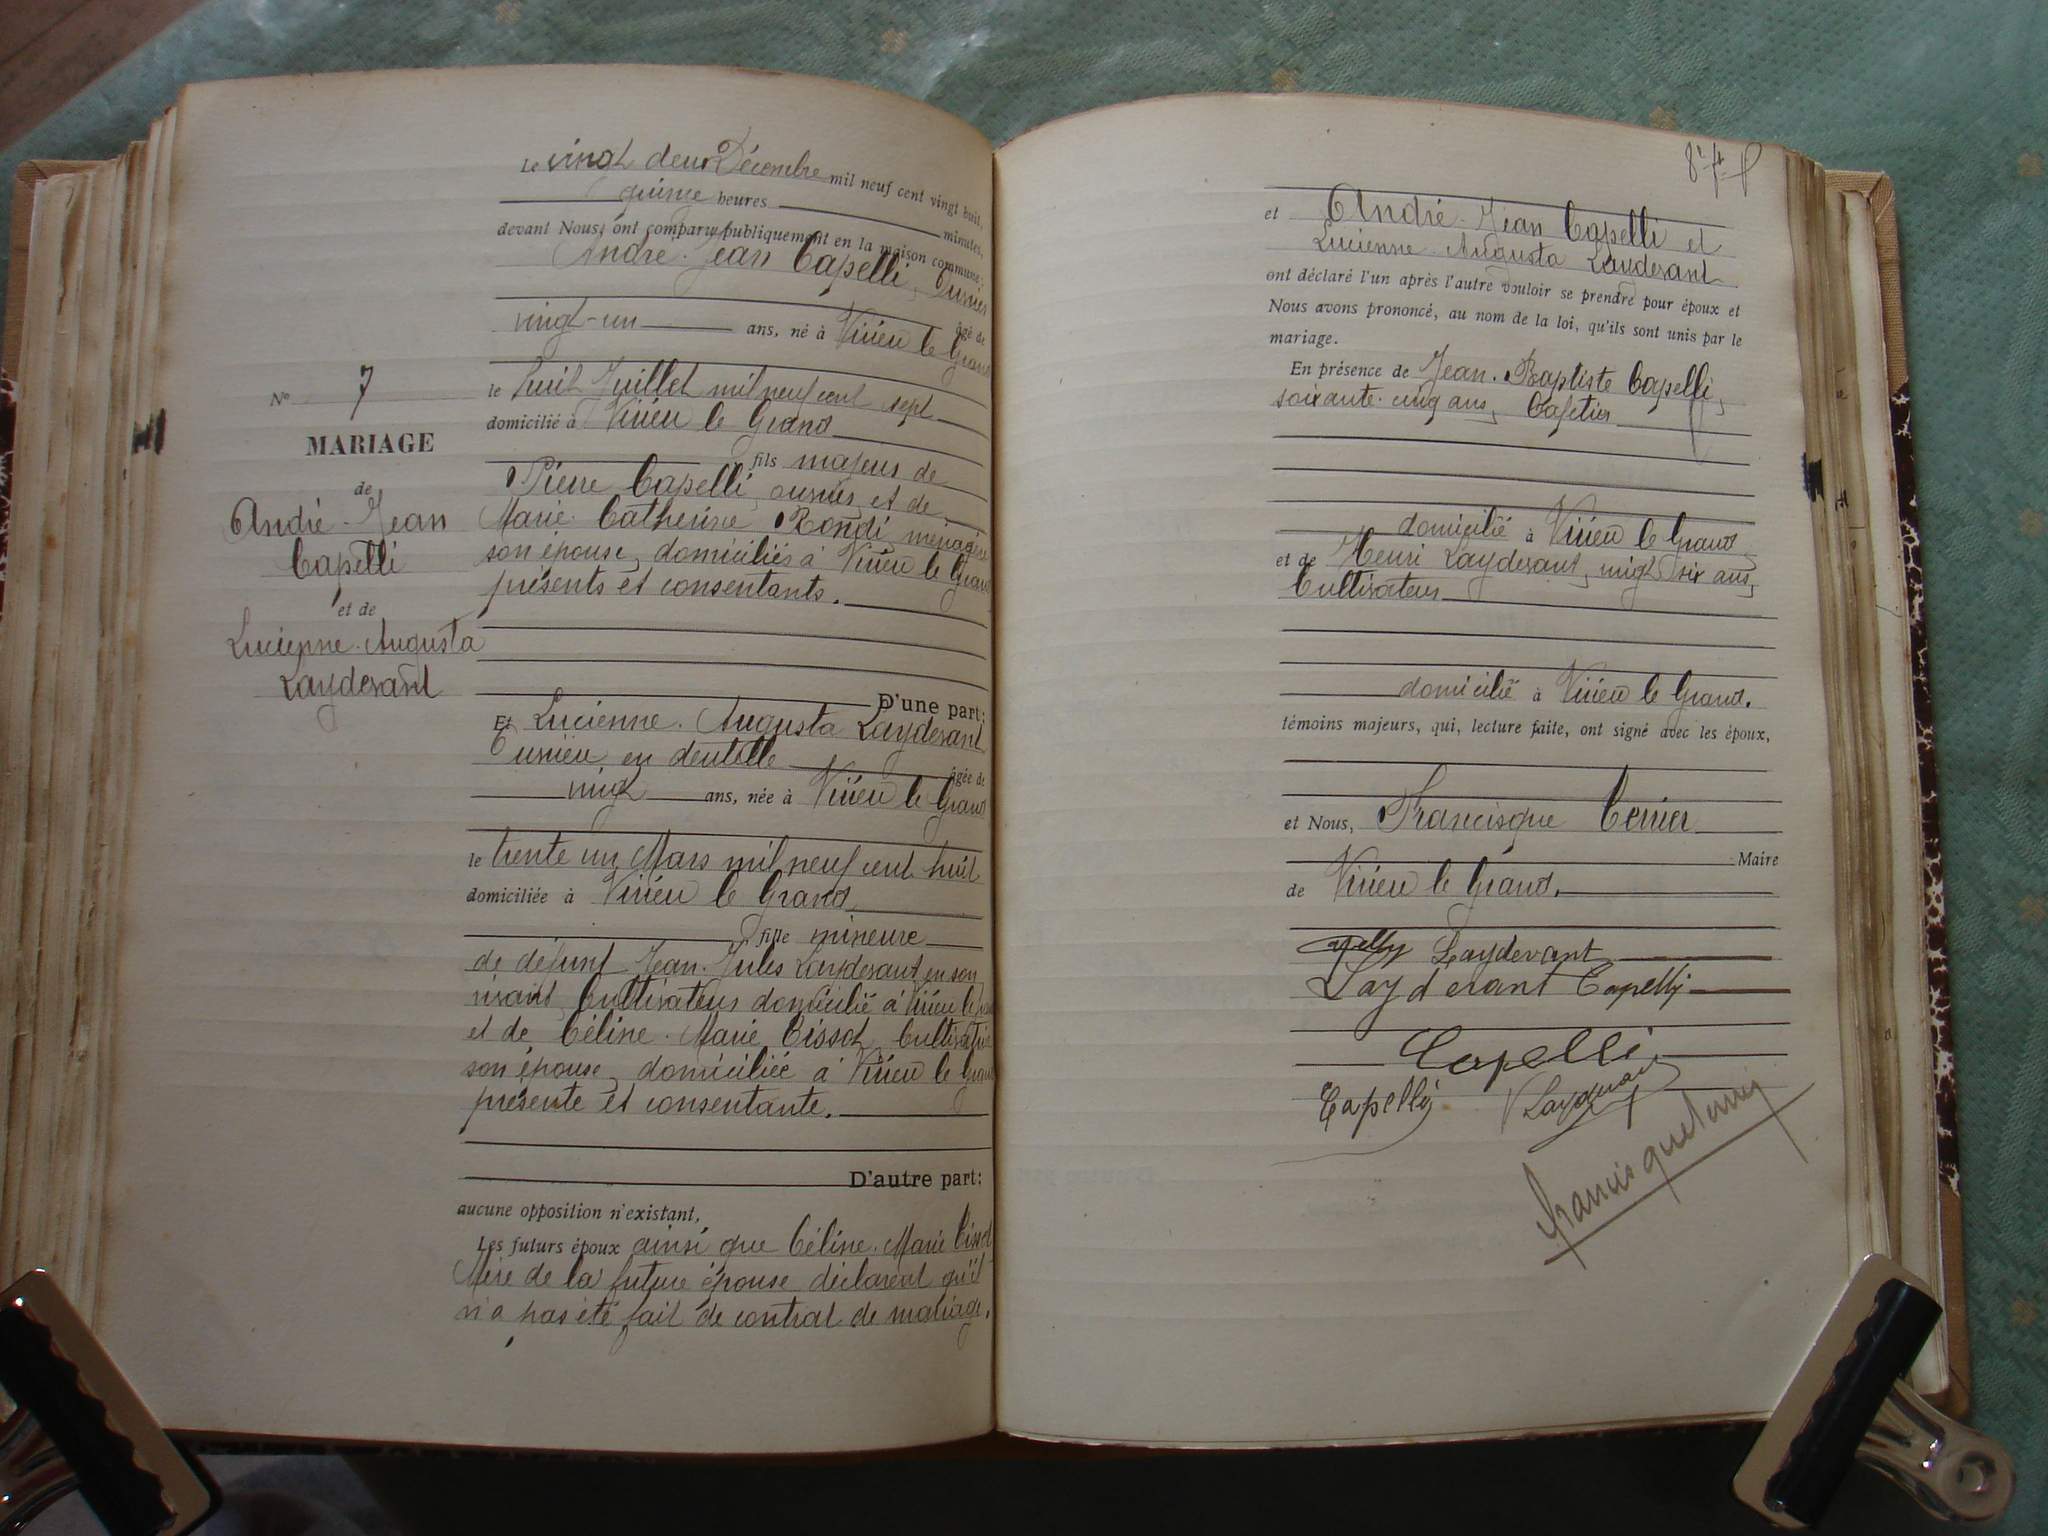 Le vingt deux Décembre mil neuf cent vingt huit,
quinze heures minutes,
devant Nous, ont comparu publiquement en la maison commune:
André-Jean Capelli, Ouvrier
âgé de
vingt-un ans, né à Virieu le Grand
le huit Juillet mil neuf cent sept
domicilié à Virieu le Grand
fils majeur de
Pierre Capelli, ouvrier, et de
Marie-Catherine Rondi ménagère
son épouse, domiciliés à Virieu le Grand
présents et consentants.
D'une part;
Nº 7
MARIAGE
de
André-Jean
Capelli
et de
Lucienne-Augusta
Laydevant
Et Lucienne-Augusta Laydevant
Ouvrière en dentelle
âgée de
vingt ans, née à Virieu le Grand
le trente un Mars mil neuf cent huit
domiciliée à Virieu le Grand
fille mineure
de défunt Jean-Jules Laydevant, en son
vivant, Cultivateur domicilié à Virieu le Grand
et de Céline-Marie Cissot, Cultivatrice
son épouse, domiciliée à Virieu le Grand
présente et consentante.
D'autre part:
aucune opposition n'existant,
Les futurs époux ainsi que Céline-Marie Cissot
Mère de la future épouse déclarent qu'il
n'a pas été fait de contrat de mariage.
et André-Jean Capelli et
Lucienne-Augusta Laydevant
ont déclaré l'un après l'autre vouloir se prendre pour époux et
Nous avons prononcé, au nom de la loi, qu'ils sont unis par le
mariage.
En présence de Jean-Baptiste Capelli,
soixante-cinq ans, Cafetier
domicilié à Virieu le Grand
et de Henri Laydevant, vingt six ans,
Cultivateur
domicilié à Virieu le Grand.
témoins majeurs, qui, lecture faite, ont signé avec les époux,
et Nous, Francisque Terrier
Maire
de Virieu le Grand.
Capelly Laydevant
Laydevant Capelli
Capelli
Capelli Laydevant
Francisque Terrier